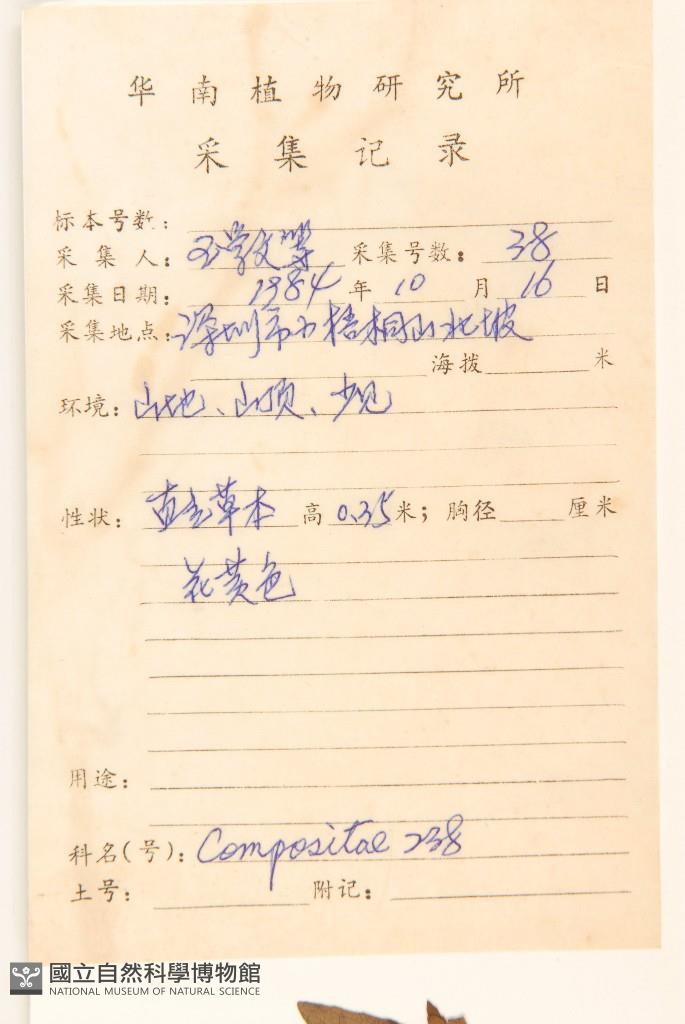 华南植物研究所
采集记录
标本号数:
采集人: 王学文等 采集号数: 38
采集日期: 1984 年 10 月 16 日
采集地点: 深圳市小梧桐山北坡
海拨 米
环境: 山地、山顶、少见
性状: 直立草本 高 0.35 米; 胸径 厘米
花黄色
用途:
科名(号): Compositae 238
土号: 附记:
國立自然科學博物館
NATIONAL MUSEUM OF NATURAL SCIENCE